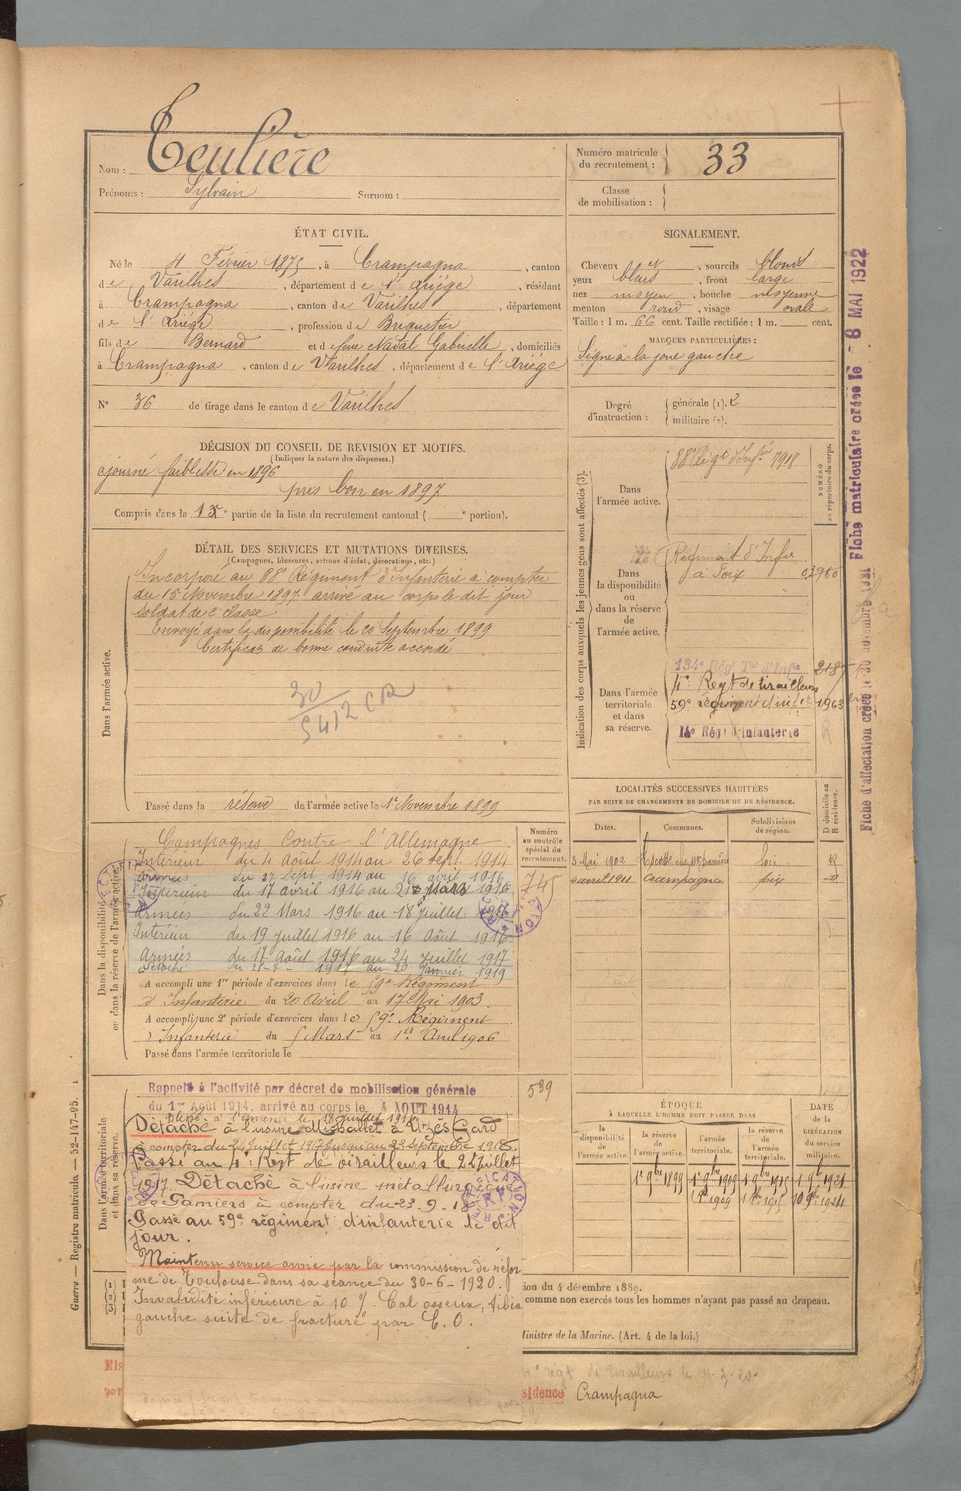 Nom : Teulière
Prénoms : Sylvain Surnom :
Numéro matricule du recrutement : 33
Classe de mobilisation :
ÉTAT CIVIL.
Né le 4 Février 1875, à Crampagna, canton
de Varilhes, département de l'Ariège, résidant
à Crampagna, canton de Varilhes, département
de l'Ariège, profession de Briquetier
fils de Bernard et de feue Naval Gabrielle, domiciliés
à Crampagna, canton de Varilhes, département de l'Ariège
N° 36 de tirage dans le canton de Varilhes
SIGNALEMENT.
Cheveux et, sourcils blonds
yeux bleus, front large
nez moyen, bouche moyenne
menton rond, visage ovale
Taille : 1 m. 66 cent. Taille rectifiée : 1 m. cent.
MARQUES PARTICULIÈRES :
Signe à la joue gauche
Degré d'instruction : générale (1). 2
militaire (2).
DÉCISION DU CONSEIL DE REVISION ET MOTIFS.
(Indiquer la nature des dispenses.)
ajourné faiblesse en 1896
pris bon en 1897
Compris dans la 1re partie de la liste du recrutement cantonal ( e portion).
DÉTAIL DES SERVICES ET MUTATIONS DIVERSES.
(Campagnes, blessures, actions d'éclat, décorations, etc.)
Dans l'armée active.
Incorporé au 88e Régiment d'Infanterie à compter
du 15 Novembre 1897 arrivé au corps le dit jour
soldat de 2e classe
Envoyé dans la disponibilité le 20 Septembre 1899
Certificat de bonne conduite accordé
Passé dans la réserve de l'armée active le 1er Novembre 1899
Indication des corps auxquels les jeunes gens sont affectés (3).
NUMÉRO au répertoire du corps.
Dans l'armée active.
88e Régt d'Infie 1918
Dans la disponibilité ou dans la réserve de l'armée active.
Régiment d'Infie
à Foix
Dans l'armée territoriale et dans sa réserve.
134e Régt Ter d'Infie
4e Regt de tirailleurs
59e régiment d'infie 1963
14e Régt d'Infanterie
LOCALITÉS SUCCESSIVES HABITÉES
PAR SUITE DE CHANGEMENTS DE DOMICILE OU DE RÉSIDENCE.
Dates. Communes. Subdivisions de région. D domicile ou R résidence.
3 Mai 1902 Foix R
4 avril 1911 Crampagna Foix
Dans la disponibilité ou dans la réserve de l'armée active.
Numéro au contrôle spécial du recrutement.
745
Campagnes Contre l'Allemagne
Intérieur du 4 Août 1914 au 26 Sept 1914
Armées du 27 Sept 1914 au 16 avril 1916
Intérieur du 17 avril 1916 au 21 Mars 1916
Armées du 22 Mars 1916 au 18 Juillet 1916
Intérieur du 19 juillet 1916 au 16 Août 1916
Armées du 17 Août 1916 au 24 Juillet 1917
1917 au 20 Janvier 1919
A accompli une 1re période d'exercices dans le 59e Régiment
d'Infanterie du 20 Avril au 17 Mai 1903
A accompli une 2e période d'exercices dans le 59e Régiment
d'Infanterie du 5 Mars au 1er Avril 1906
Passé dans l'armée territoriale le
Dans l'armée territoriale et dans sa réserve.
539
Rappelé à l'activité par décret de mobilisation générale
du 1er Août 1914, arrivé au corps le 4 AOUT 1914
Détaché à l'usine à Uzès Gard
à compter du 24 Juillet 1917 jusqu'au 23 Septembre 1918.
Passé au 4e Régt de tirailleurs le 24 Juillet
1917. Détaché à l'usine métallurgique
de Pamiers à compter du 23-9-18
Passé au 59e régiment d'infanterie le dit
jour.
Maintenu service armé par la commission de réfor
me de Toulouse dans sa séance du 30-6-1920.
Invalidité inférieure à 10 % Cal osseux, tibia
gauche suite de fracture par E. O.
ÉPOQUE
À LAQUELLE L'HOMME DOIT PASSER DANS
la disponibilité de l'armée active. la réserve de l'armée active. l'armée territoriale. la réserve de l'armée territoriale.
DATE de la LIBÉRATION du service militaire.
1er 9bre 1899 1er 9bre 1909 1er 9bre 1915 1er 9bre 1921
ion du 4 décembre 1889.
comme non exercés tous les hommes n'ayant pas passé au drapeau.
Ministre de la Marine. (Art. 4 de la loi.)
régt de tirailleurs le
sidence Crampagna
Guerre — Registre matricule — 52-147-95.
Fiche matriculaire créée le - 8 MAI 1922
Fiche d'affectation créée le 30 novembre 1931